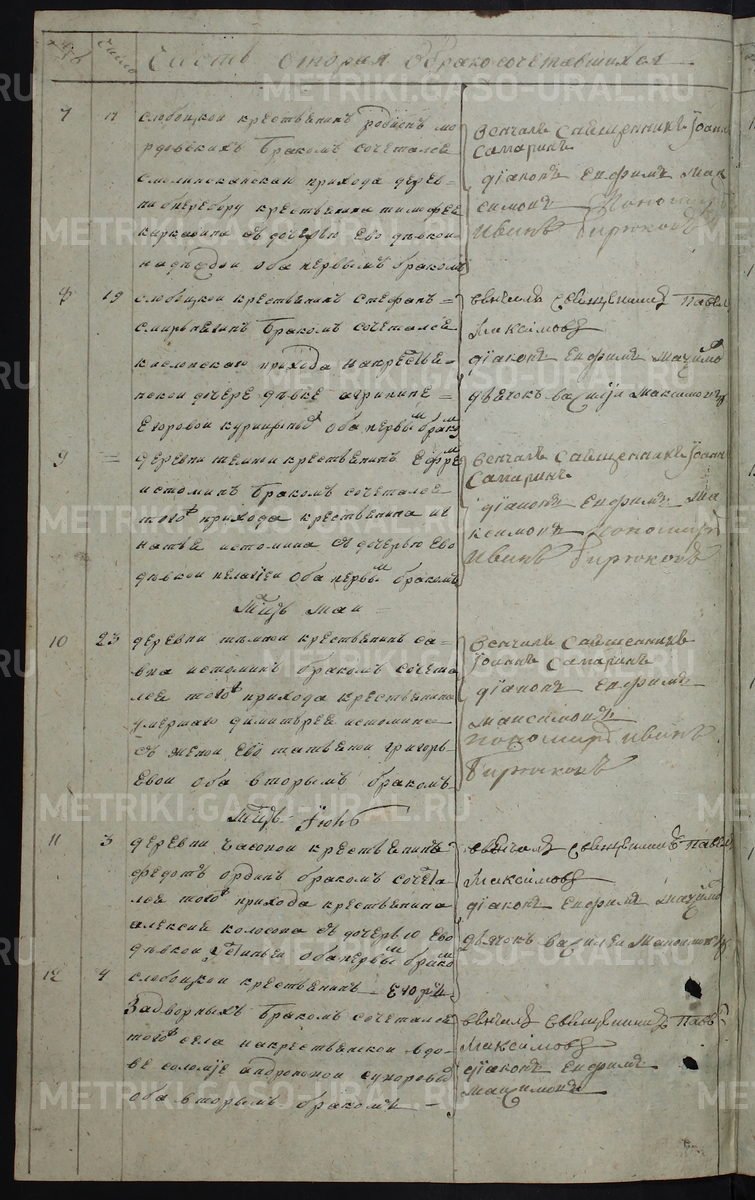 число
Часть вторая о бракосочетавшихся
7
слобоцкои крестьянинъ родионъ мо
рдовскихъ бракомъ сочетался
прихода дерев=
ни крестьянина тимофея
съ дочерью его девкои
надеждои оба первымъ бракомъ
венчалъ священникъ Iоаннъ
Самаринъ
дiаконъ Ефимъ Мак
симовъ Пономарь
Иванъ Бирюковъ
8 19
слобоцкои крестьянинъ стефанъ =
бракомъ сочетался
прихода накрестьян=
скои дочере девке агрипине =
Егоровои оба первымъ бракомъ
венчалъ священникъ Павелъ
Максимовъ
дiаконъ Ефимъ Максимо
дьячокъ василiи Максимовъ
9 =
деревни темнои крестьянинъ Ефре
истоминъ бракомъ сочетался
того прихода крестьянина иг
натья истомина съ дочерью Его
девкои пелагiеи оба первымъ бракомъ
венчалъ священникъ Iоаннъ
Самаринъ
дiаконъ Ефимъ Ма
ксимовъ Пономарь
Иванъ Бирюковъ
маи =
10 23
деревни темнои крестьянинъ са=
вва истоминъ бракомъ сочета
лся того прихода крестьянина
умершаго димитрея истомина =
съ женои Его татьянои григорь
евои оба вторымъ бракомъ
венчалъ священникъ
Iоаннъ Самаринъ
дiаконъ Ефимъ
Максимовъ
пономарь иванъ
Бирюковъ
Iюнь
11 3
деревни часовои крестьянинъ
федотъ ординъ бракомъ сочета
лся того прихода крестьянина
алексия колосова съ дочерью Его
девкои оба первымъ бракомъ
венчалъ священникъ Павелъ
Максимовъ
дiаконъ Ефимъ Максимо
дьячокъ василеи Максимовъ
12 4
слобоцкои крестьянинъ Егоръ
Задворныхъ бракомъ сочетался
того села накрестьянскои вдо
ве соломiе андроновои суворовои
оба вторымъ бракомъ =
венчалъ священникъ Павелъ
Максимовъ
дiаконъ Ефимъ
Максимовъ
METRIKI.GASO-URAL.RU